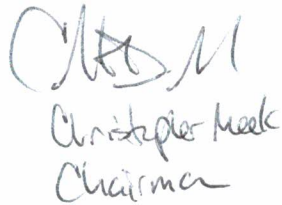 Christopher Meek
Chairman